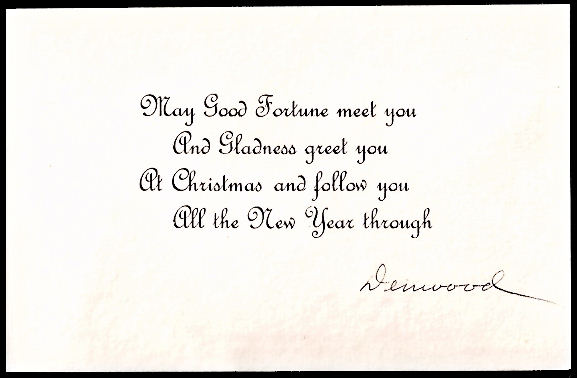 May Good Fortune meet you
And Gladness greet you
At Christmas and follow you
All the New Year through
Denwood